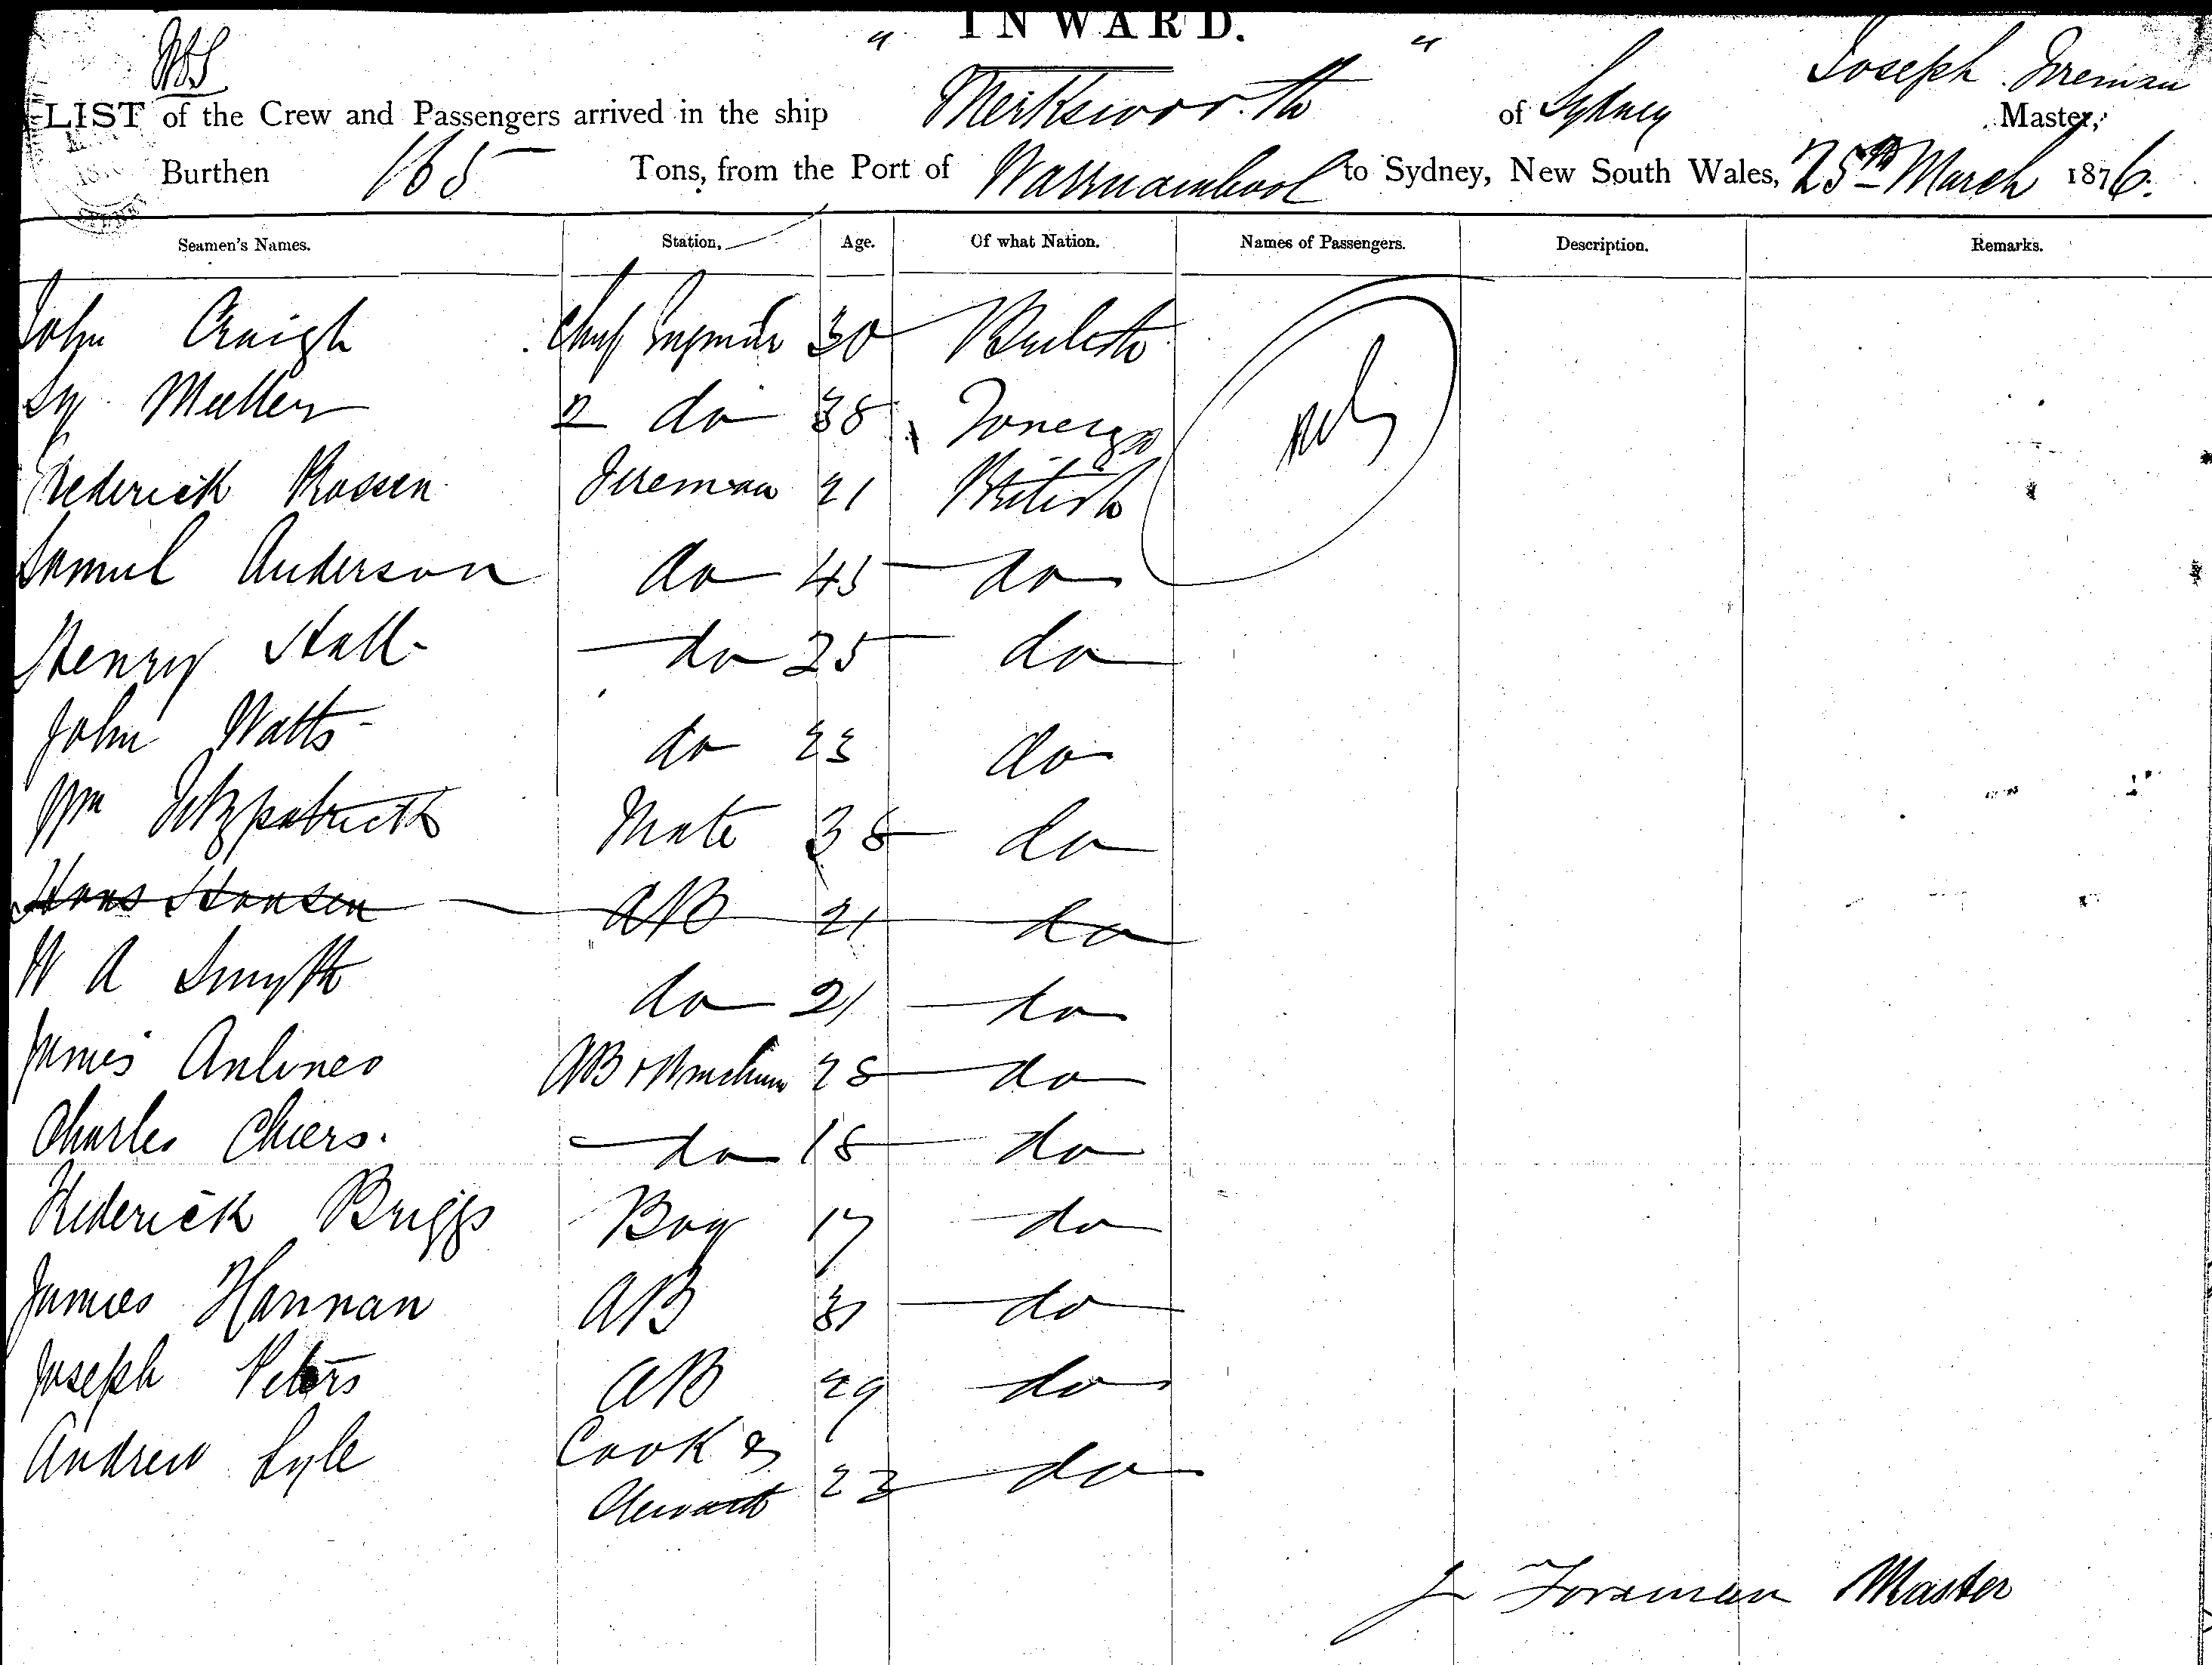 INWARD.
LIST of the Crew and Passengers arrived in the ship " Merksworth " of Sydney Joseph Foreman Master,
Burthen 165 Tons, from the Port of Warrnambool to Sydney, New South Wales, 25th March 1876.
Seamen's Names. Station, Age. Of what Nation. Names of Passengers. Description. Remarks.
John Craigh Chief Engineer 30 British
Muller 2 do 38 Foreign
Frederick Rossen Fireman 21 British
Samuel Anderson do 45 do
Henry Hall do 25 do
John Watts do 23 do
Wm Fitzpatrick Mate 38 do
Hans Hansen AB 21 do
W A Smyth do 21 do
James AB & Winchman 28 do
Charles Chiers. do 18 do
Frederick Briggs Boy 17 do
James Hannan AB 31 do
Joseph Peters AB 29 do
Andrew Lyle Cook &
Steward 23 do
J Foreman Master